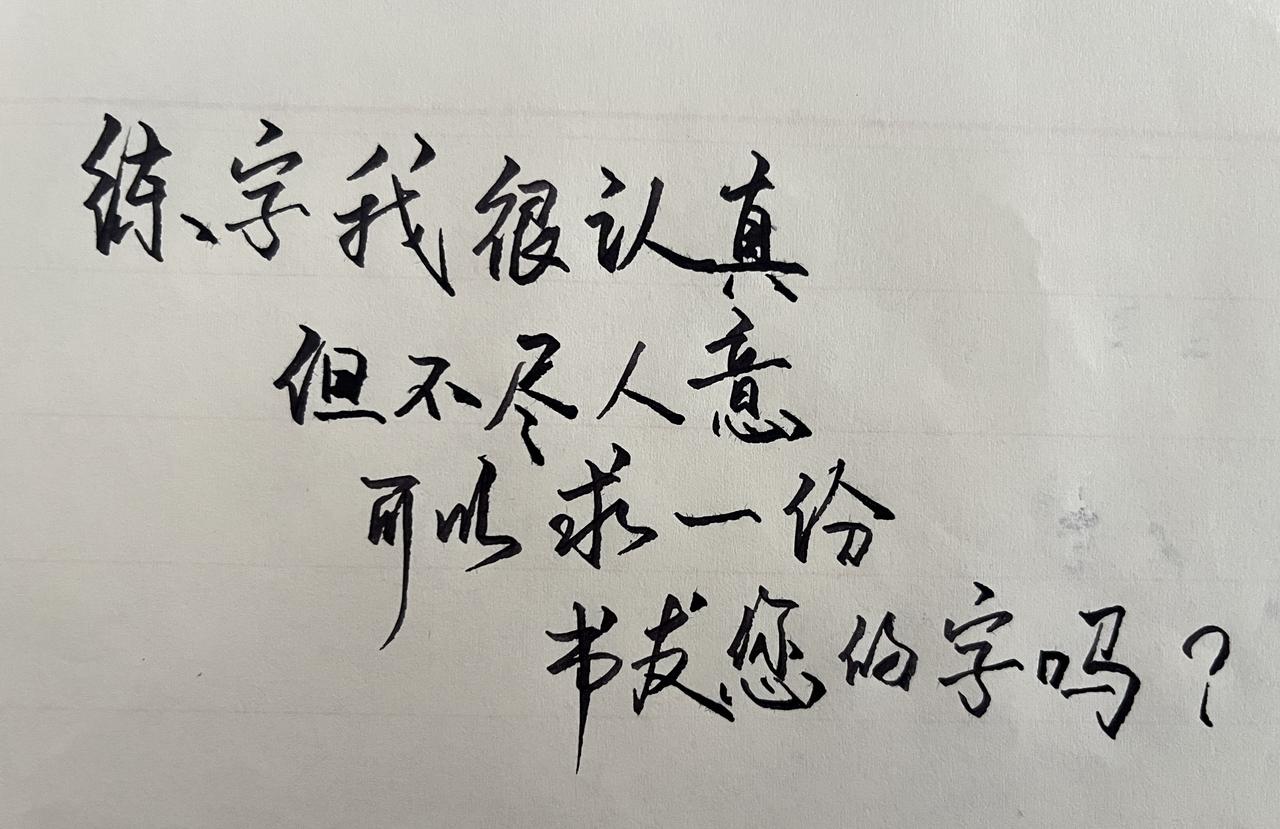 练字我很认真
但不尽人意
可以求一份
书友您的字吗？